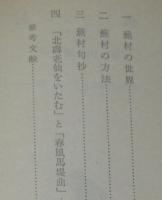 一 蕪村の世界
二 蕪村の方法
三 蕪村句抄
四 「北寿老仙をいたむ」と「春風馬堤曲」
参考文献